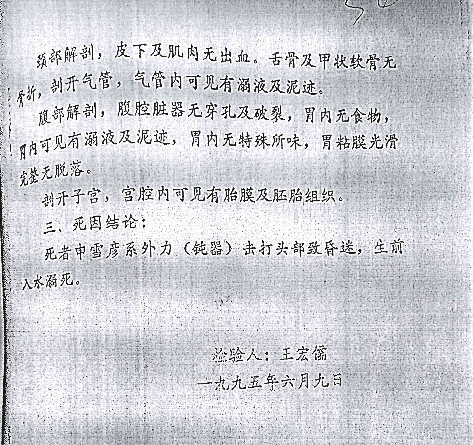 颈部解剖，皮下及肌肉无出血。舌骨及甲状软骨无
骨折，剖开气管，气管内可见有溺液及泥迹。
腹部解剖，腹腔脏器无穿孔及破裂，胃内无食物，
胃内可见有溺液及泥迹，胃内无特殊所味，胃粘膜光滑
完整无脱落。
剖开子宫，宫腔内可见有胎膜及胚胎组织。
三、死因结论：
死者申雪彦系外力（钝器）击打头部致昏迷，生前
入水溺死。
检验人：王宏儒
一九九五年六月九日